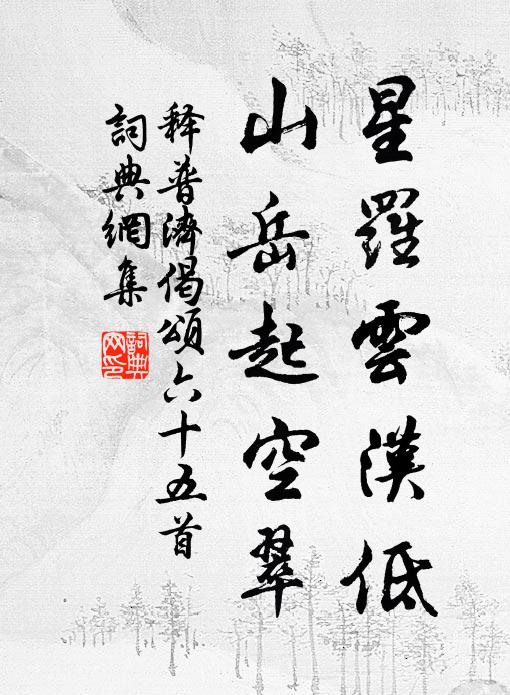 星羅雲漢低
山岳起空翠
釋普濟偈頌六十五首
詞典網集
詞典網印